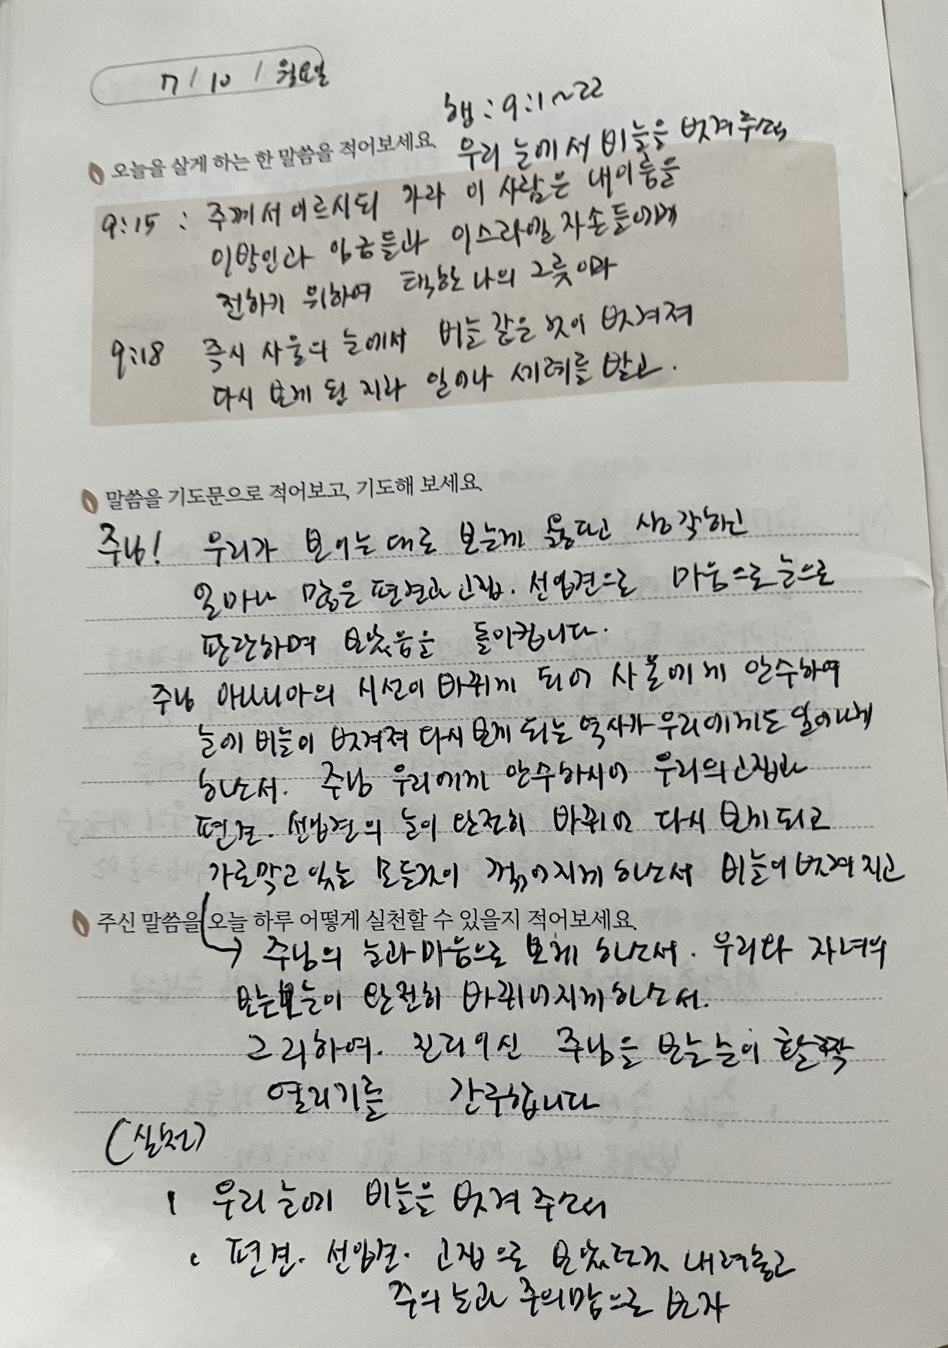 7 / 10 / 월요일
행 : 9:1~22
오늘을 살게 하는 한 말씀을 적어보세요. 우리 눈에서 비늘을 벗겨주소서
9:15 : 주께서 이르시되 가라 이 사람은 내이름을
이방인과 임금들과 이스라엘 자손들에게
전하기 위하여 택한 나의 그릇이라
9:18 즉시 사울의 눈에서 비늘 같은 것이 벗겨져
다시 보게 된 지라 일어나 세례를 받고.
말씀을 기도문으로 적어보고, 기도해 보세요.
주님! 우리가 보이는대로 보는게 옳다고 생각하고
얼마나 많은 편견과 고집. 선입견으로 마음으로 눈으로
판단하며 보았음을 돌이킵니다.
주님 아나니아의 시선이 바뀌게 되어 사울에게 안수하여
눈에 비늘이 벗겨져 다시 보게 되는 역사가 우리에게도 일어나게
하소서. 주님 우리에게 안수하시어 우리의 고집과
편견. 선입견의 눈이 완전히 바뀌어 다시 보게 되고
가로막고 있는 모든것이 꺾어지게 하소서 비늘이 벗겨지고
주신 말씀을 오늘 하루 어떻게 실천할 수 있을지 적어보세요.
→ 주님의 눈과 마음으로 보게 하소서. 우리 자녀의
보는 눈이 완전히 바뀌어지게 하소서.
그리하여. 진리이신 주님을 보는 눈이 활짝
열리기를 간구합니다
(실천)
1 우리 눈에 비늘을 벗겨 주소서
편견. 선입견. 고집으로 보았던것 내려놓고
주의 눈과 주의맘으로 보자